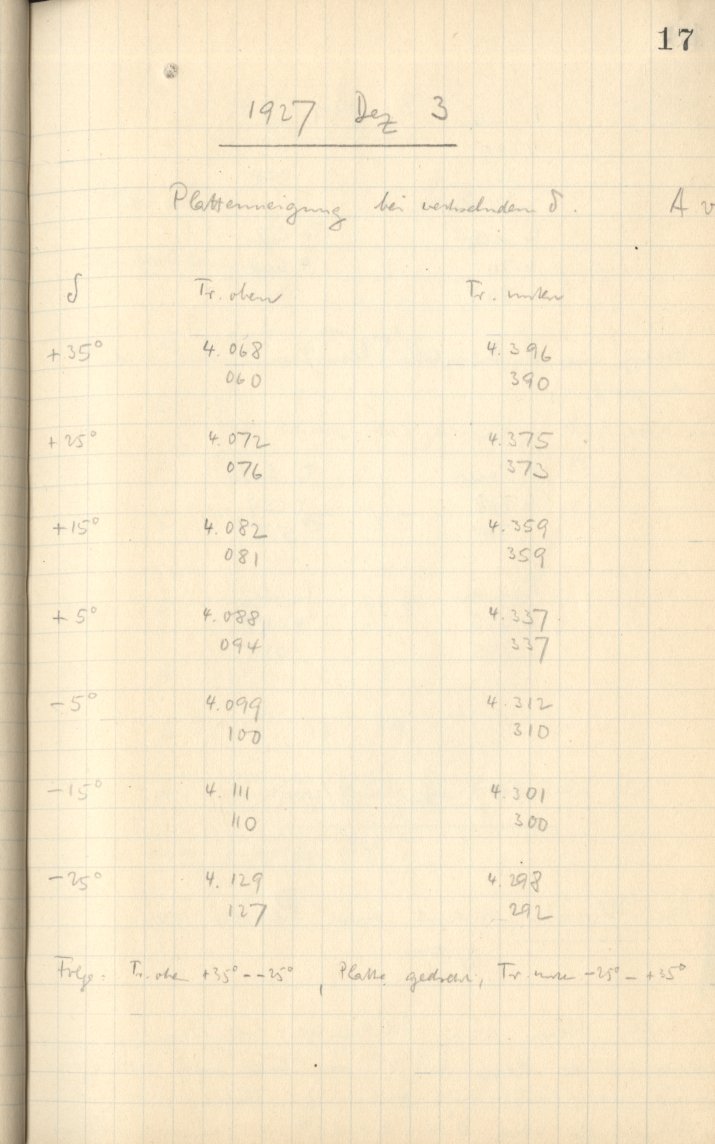 17
1927 Dez 3
Plattenneigung bei wechselndem δ. A v
δ Tr. oben Tr. unten
+35° 4.068 4.396
060 390
+25° 4.072 4.375
076 373
+15° 4.082 4.359
081 359
+5° 4.088 4.337
094 337
-5° 4.099 4.312
100 310
-15° 4.111 4.301
110 300
-25° 4.129 4.298
127 292
Folge: Tr. oben +35° - -25°, Platte gedreht, Tr. unten -25° - +35°